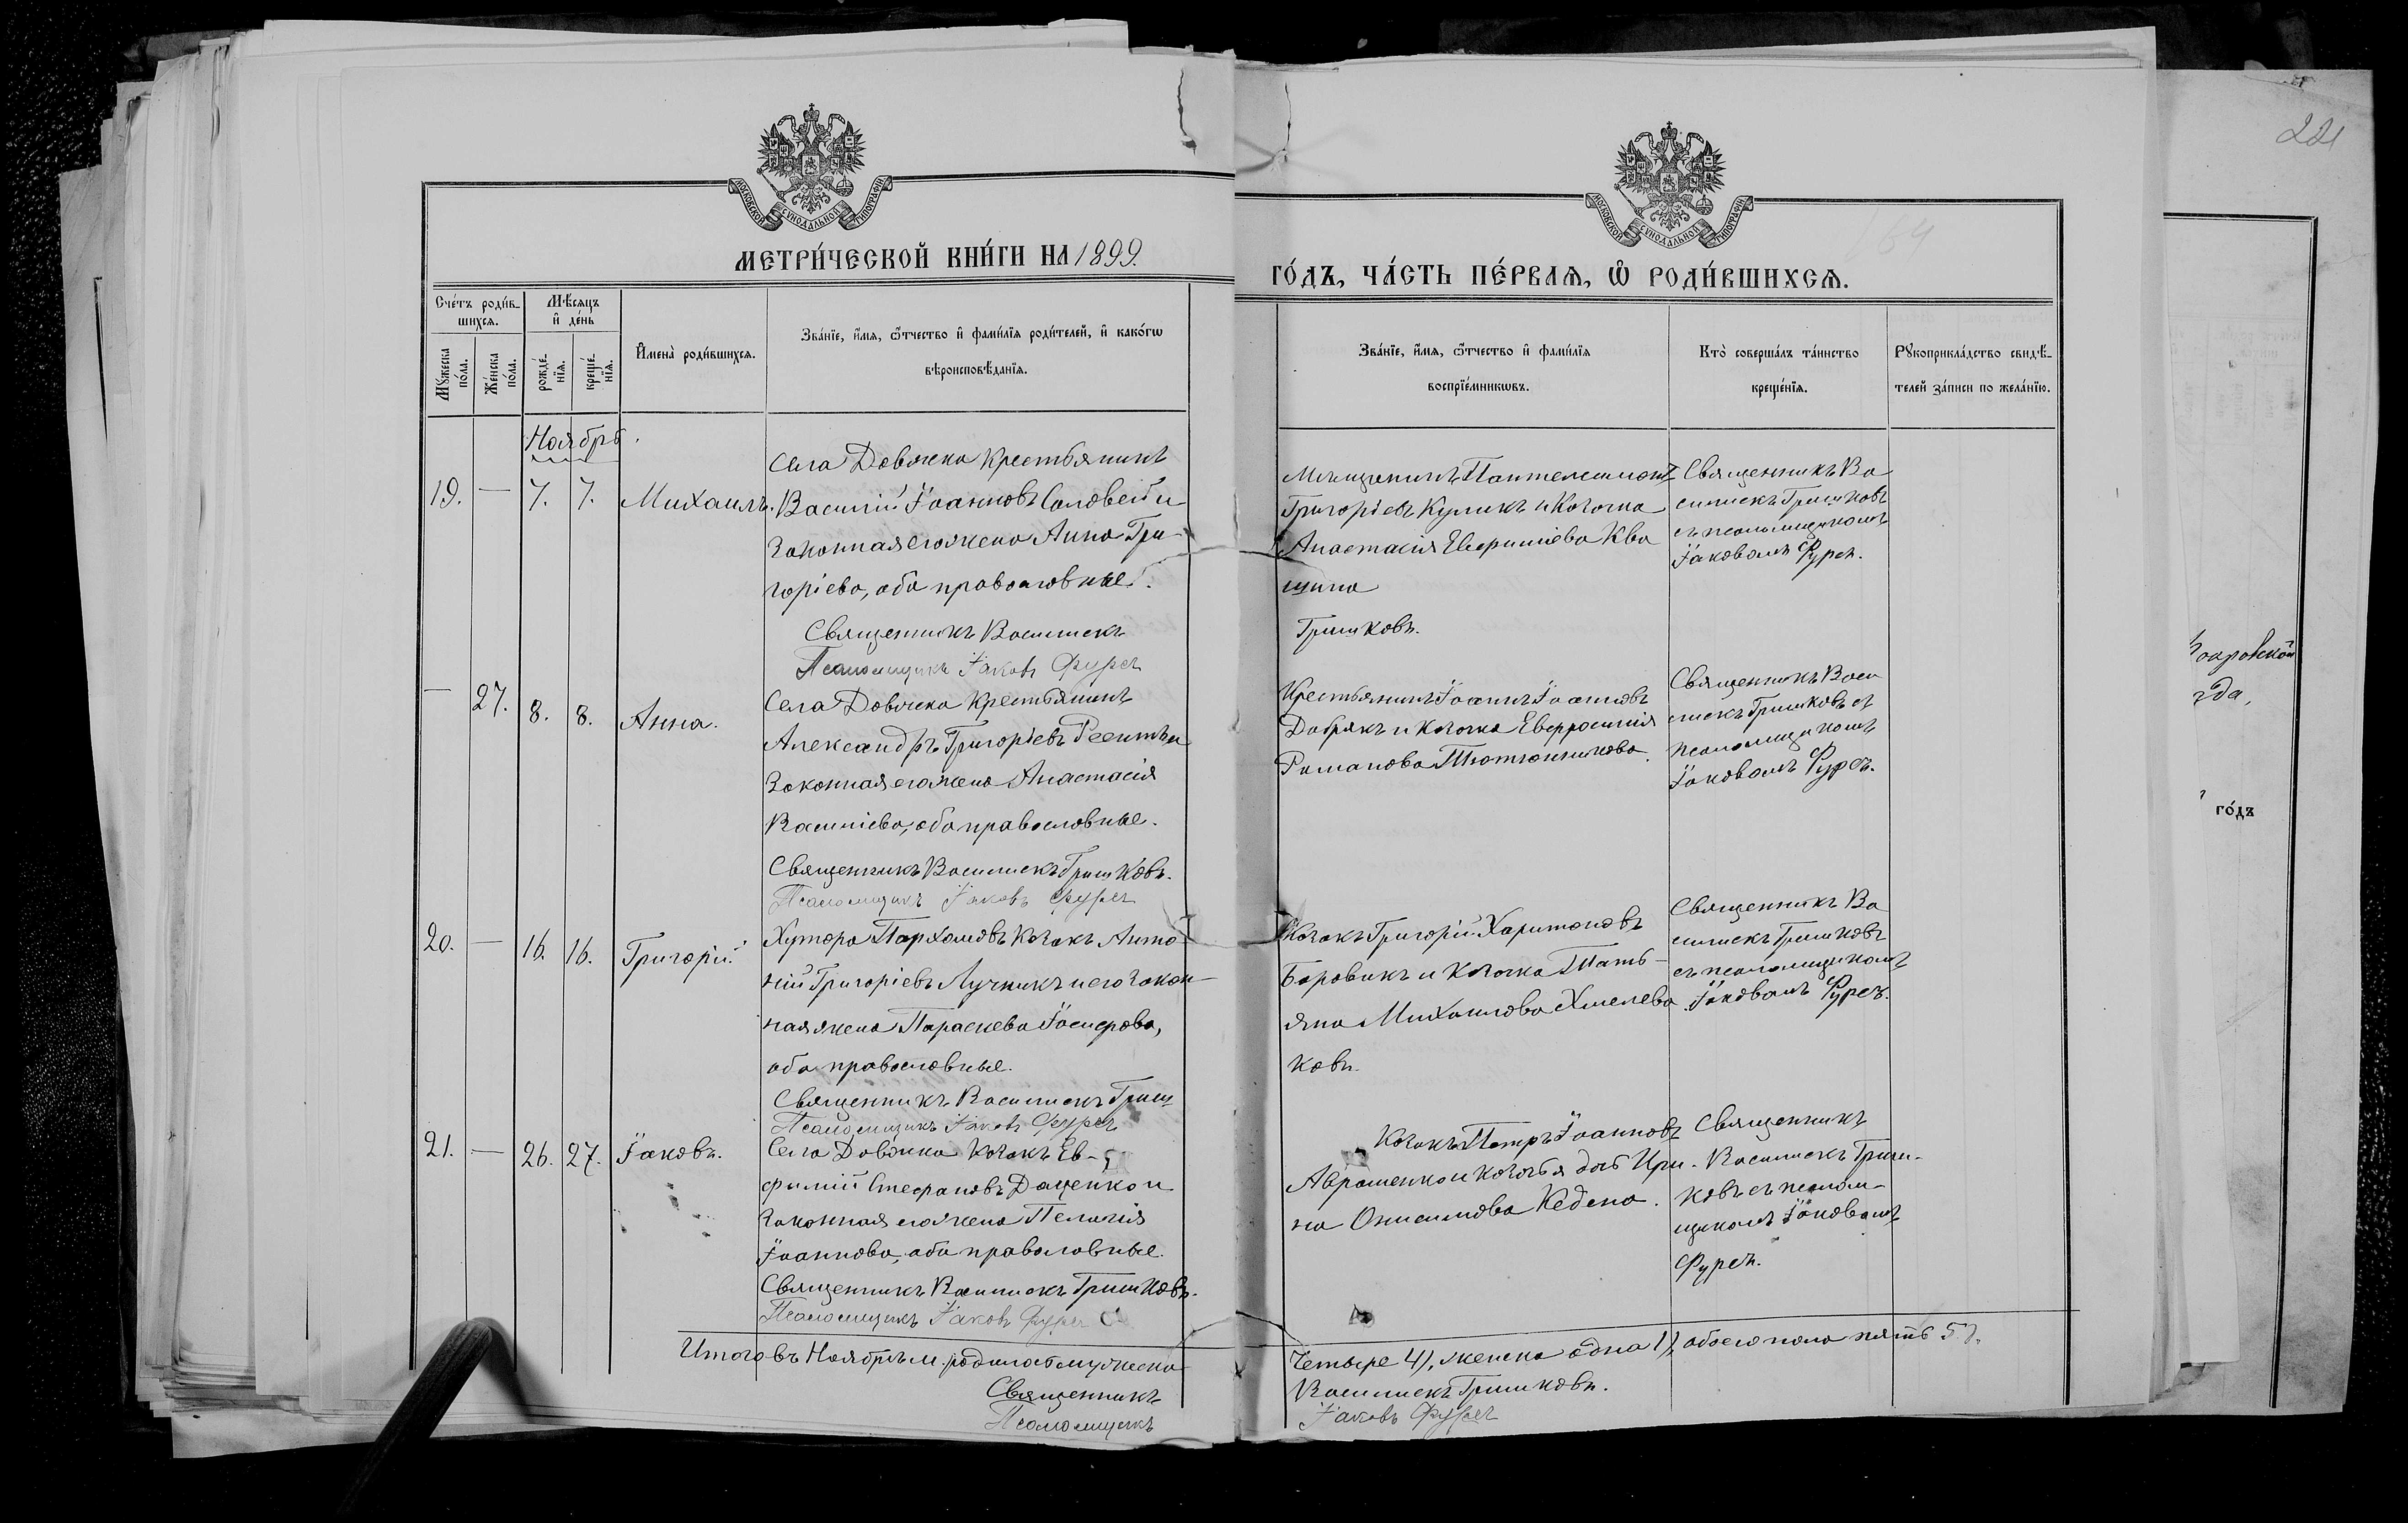 221
164
МОСКОВСКОЙ СУНОДАЛЬНОЙ ТИПОГРАФІИ
МОСКОВСКОЙ СУНОДАЛЬНОЙ ТИПОГРАФІИ
МЕТРИ́ЧЕСКОЙ КНИ́ГИ НА 1899.
ГО́ДЪ, ЧА́СТЬ ПЕ́РВАѦ, Ѽ РОДИ́ВШИХСѦ.
Сче́тъ роди́в-
шихсѧ.
Мѣ́сѧцъ
и҆ де́нь
Мꙋ́жеска
по́ла.
Же́нска
по́ла.
рожде́-
нїѧ.
креще́-
нїѧ.
И҆мена̀ роди́вшихсѧ.
Зва́нїе, и҆́мѧ, ѻ҆́тчество и҆ фами́лїѧ роди́телей, и҆ како́гѡ
вѣроисповѣ́данїѧ.
Зва́нїе, и҆́мѧ, ѻ҆́тчество и҆ фами́лїѧ
воспрїе́мникѡвъ.
Кто̀ соверша́лъ та́инство
креще́нїѧ.
Рꙋкоприкла́дство свидѣ́-
телей за́писи по жела́нїю.
Ноябрь.
19. — 7. 7. Михаилъ.
Села Довжика Крестьянинъ
Василій Іоанновъ Соловей и
законная его жена Анна Гри-
горіева, оба православные.
Священникъ Василискъ
Псаломщикъ Іаковъ Фурсъ
Мещанинъ Пантелеимонъ
Григоріевъ Куликъ и Козачка
Анастасія Евфиміева Ква
щина
Гришковъ.
Священникъ Ва
силискъ Гришковъ
съ псаломщикомъ
Іаковомъ Фурсъ.
— 27. 8. 8. Анна.
Села Довжика Крестьянинъ
Александръ Григоріевъ и
Законная его жена Анастасія
Василіева, оба православные.
Священникъ Василискъ Гришковъ.
Псаломщикъ Іаковъ Фурсъ
Крестьянинъ Іоаннъ Іоанновъ
Добрякъ и Козачка Евфросинія
Романова Тютюнникова.
Священникъ Васи
лискъ Гришковъ съ
псаломщикомъ
Іаковомъ Фурсъ.
20. — 16. 16. Григорій
Хутора Пархомовъ Козакъ Анто
ній Григоріевъ Лучникъ и его закон-
ная жена Параскева Іосифова,
оба православные.
Священникъ Василискъ Гриш
Псаломщикъ Іаковъ Фурсъ
Козакъ Григорій Харитоновъ
Боровикъ и Козачка Тать-
яна Михаилова Хмелева
ковъ.
Священникъ Ва
силискъ Гришковъ
съ псаломщикомъ
Іаковомъ Фурсъ.
21. — 26. 27. Іаковъ.
Села Довжика Козакъ Ев-
фимій Стефановъ Даценко и
Законная его жена Пелагія
Іоаннова, оба православные.
Священникъ Василискъ Гришковъ.
Псаломщикъ Іаковъ Фурсъ
Козакъ Петръ Іоанновъ
Авраменко и козачья дочь Ири-
на Онисимова Кедена.
Священникъ
Василискъ Гриш-
ковъ съ псалом-
щикомъ Іаковомъ
Фурсъ.
Итого въ Ноябрѣ м. родилось мужеска
Четыре 4), женска одна 1), обоего пола пять 5).
Священникъ Василискъ Гришковъ.
Псаломщикъ Іаковъ Фурсъ
года,
го́дъ